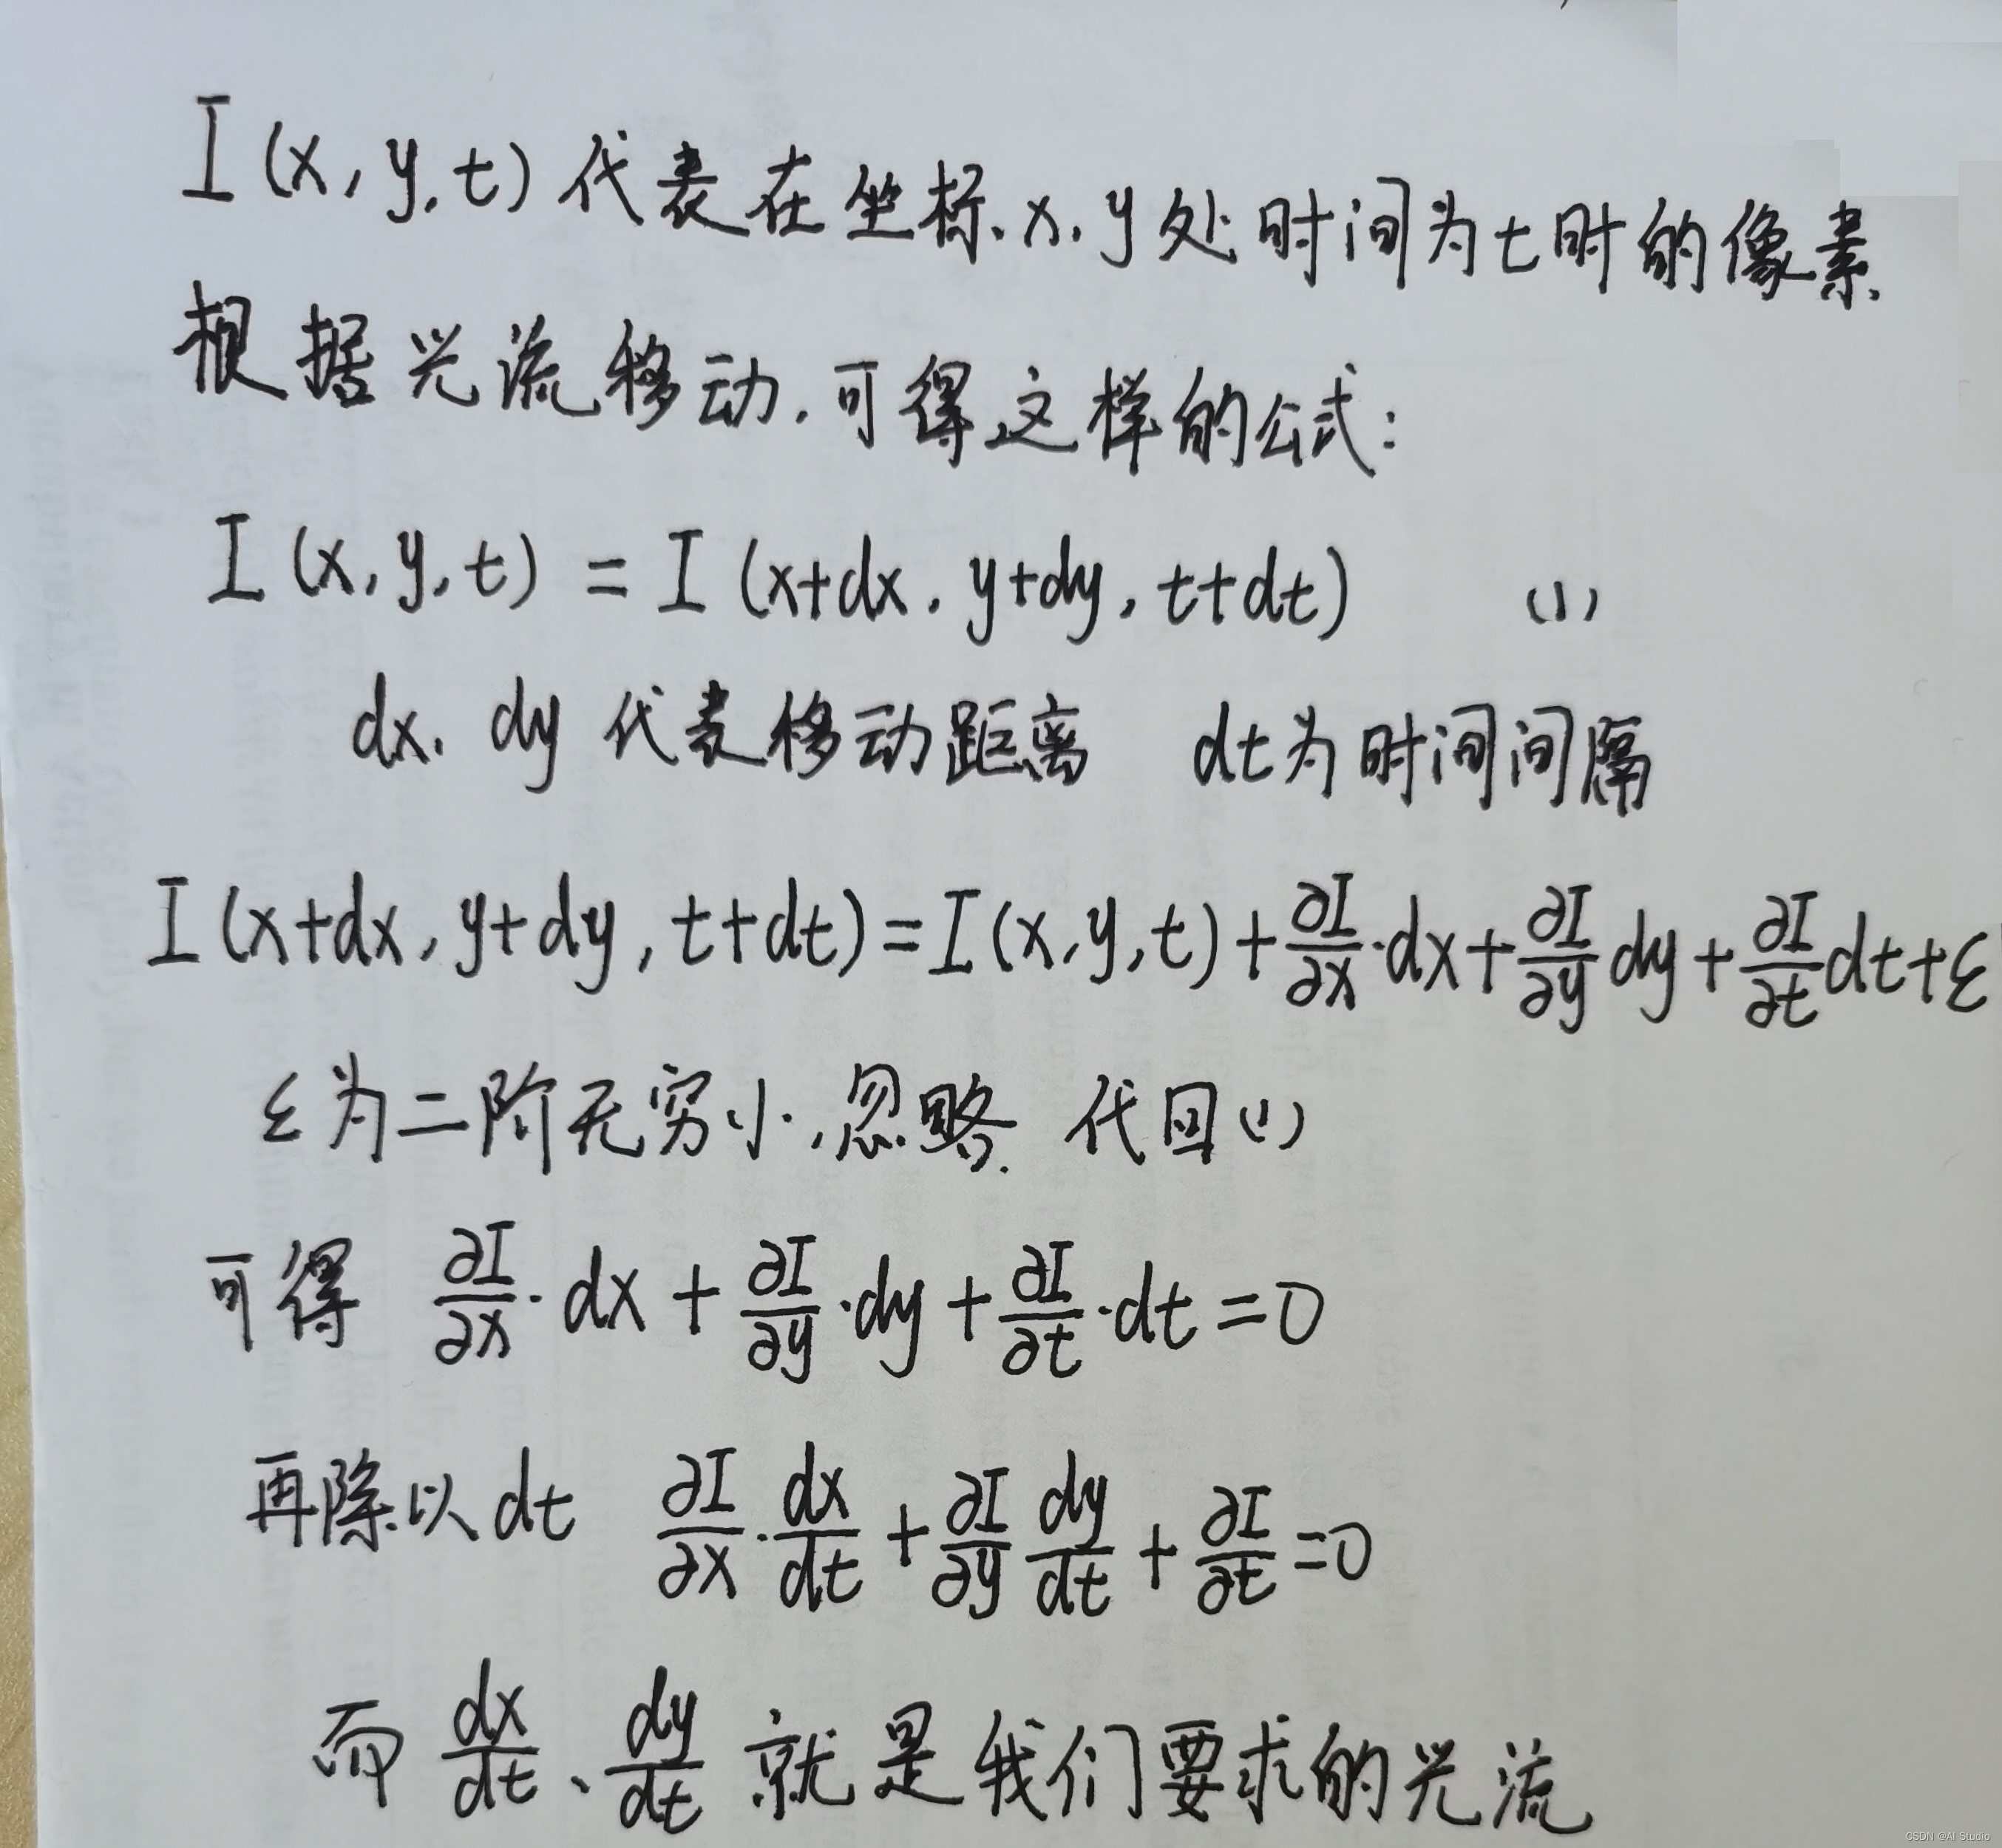 I(x,y,t)代表在坐标x,y处时间为t时的像素
根据光流移动,可得这样的公式:
I(x,y,t) = I(x+dx, y+dy, t+dt) (1)
dx, dy 代表移动距离 dt为时间间隔
I(x+dx, y+dy, t+dt) = I(x,y,t) + ∂I/∂x·dx + ∂I/∂y dy + ∂I/∂t dt + ε
ε为二阶无穷小,忽略. 代回(1)
可得 ∂I/∂x·dx + ∂I/∂y·dy + ∂I/∂t·dt = 0
再除以dt ∂I/∂x·dx/dt + ∂I/∂y dy/dt + ∂I/∂t = 0
而 dx/dt、dy/dt 就是我们要求的光流
CSDN @AI Studio